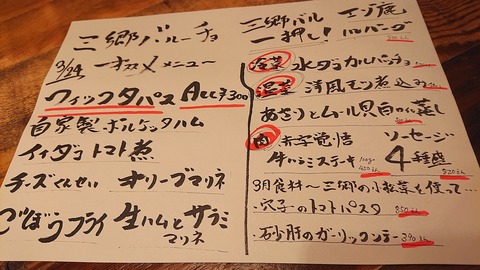 三郷バルーチョ
オススメメニュー
クイックタパス ALL¥300
自家製ボルケッタハム
イイダコトマト煮
チーズくんせい オリーブマリネ
ごぼうフライ 生ハムとサラミ
マリネ
三郷バル
一押し!
エゾ鹿
冷菜 水ダコカルパッチョ
温菜 洋風モツ煮込み
あさりとムール貝白ワイン蒸し
肉 赤字覚悟
牛ハラミステーキ 100g
ソーセージ
4種盛
3月食材〜三郷の小松菜を使って…
・穴子のトマトパスタ 850
・砂肝のガーリックソテー 390